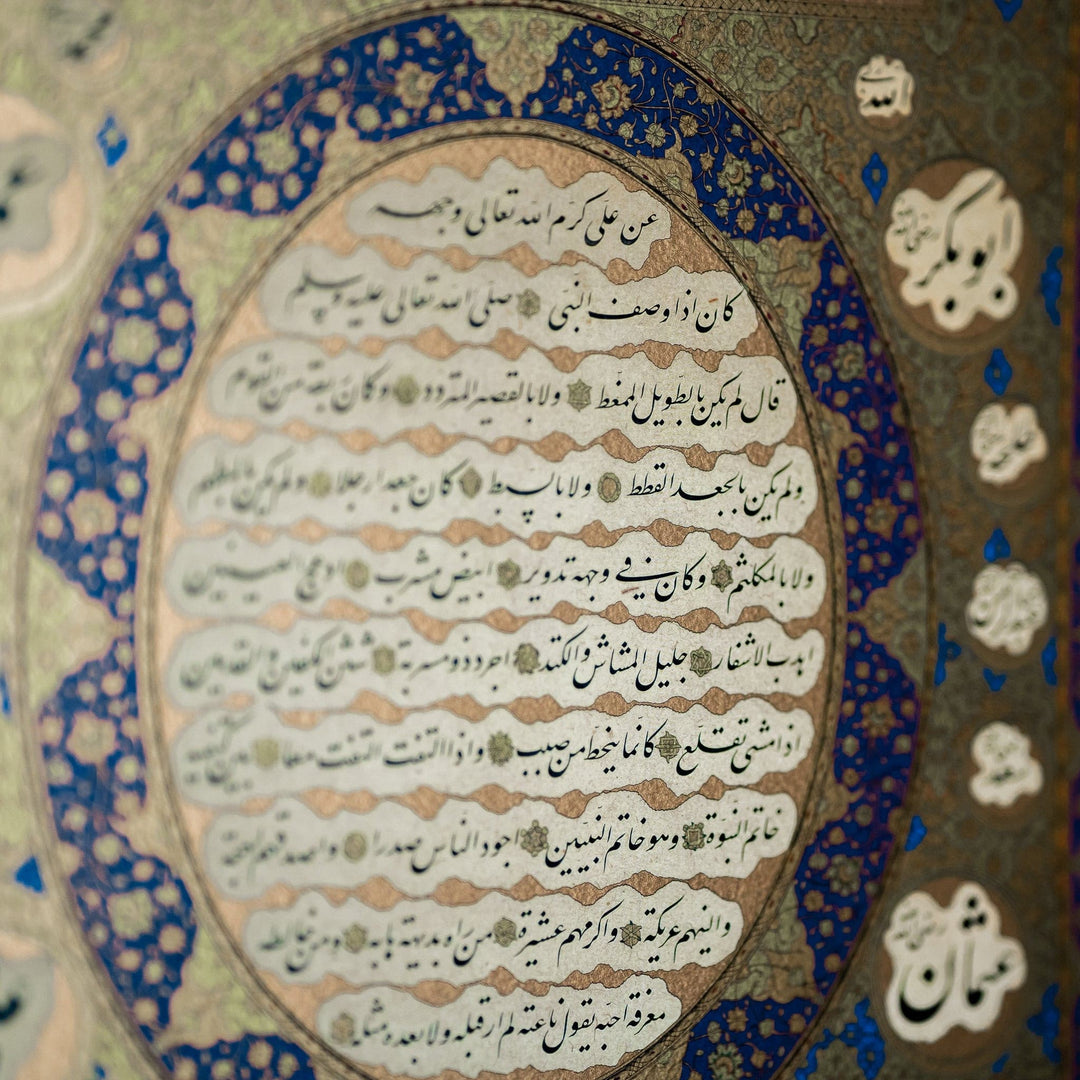 عن علی کرم الله تعالی وجهه
کان اذا وصف النبی صلی الله تعالی علیه وسلم
قال لم یکن بالطویل الممغط ولا بالقصیر المتردد وکان ربعة من القوم
ولم یکن بالجعد القطط ولا بالسبط کان جعدا رجلا ولم یکن بالمطهم
ولا بالمکلثم وکان فی وجهه تدویر ابیض مشرب ادعج العینین
اهدب الاشفار جلیل المشاش والکتد اجرد ذو مسربة شثن الکفین والقدمین
اذا مشی تقلع کانما ینحط من صبب واذا التفت التفت معا بین کتفیه
خاتم النبوة وهو خاتم النبیین اجود الناس صدرا واصدقهم لهجة
والینهم عریکة واکرمهم عشیرة من راه بدیهة هابه ومن خالطه
معرفة احبه یقول ناعته لم ار قبله ولا بعده مثله
ابو بکر رضی الله
عثمان رضی الله